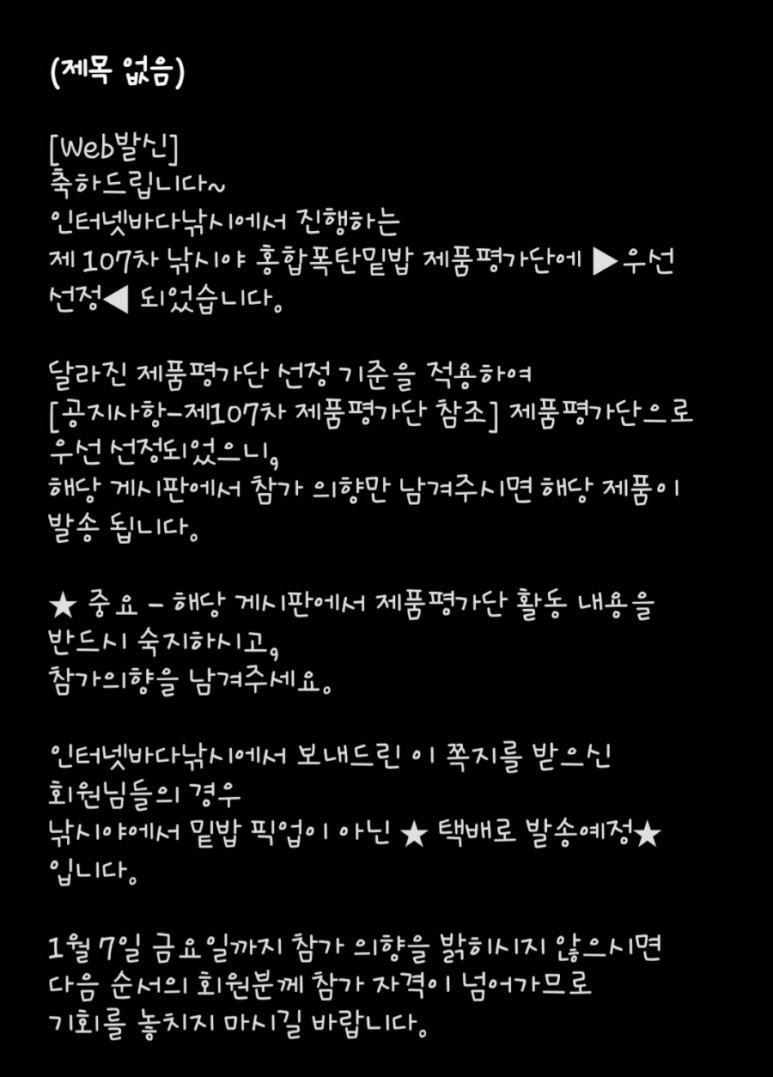 (제목 없음)
[Web발신]
축하드립니다~
인터넷바다낚시에서 진행하는
제 107차 낚시야 홍합폭탄밑밥 제품평가단에 ▶우선
선정◀ 되었습니다.
달라진 제품평가단 선정 기준을 적용하여
[공지사항-제107차 제품평가단 참조] 제품평가단으로
우선 선정되었으니,
해당 게시판에서 참가 의향만 남겨주시면 해당 제품이
발송 됩니다.
★ 중요 - 해당 게시판에서 제품평가단 활동 내용을
반드시 숙지하시고,
참가의향을 남겨주세요.
인터넷바다낚시에서 보내드린 이 쪽지를 받으신
회원님들의 경우
낚시야에서 밑밥 픽업이 아닌 ★ 택배로 발송예정★
입니다.
1월 7일 금요일까지 참가 의향을 밝히시지 않으시면
다음 순서의 회원분께 참가 자격이 넘어가므로
기회를 놓치지 마시길 바랍니다.